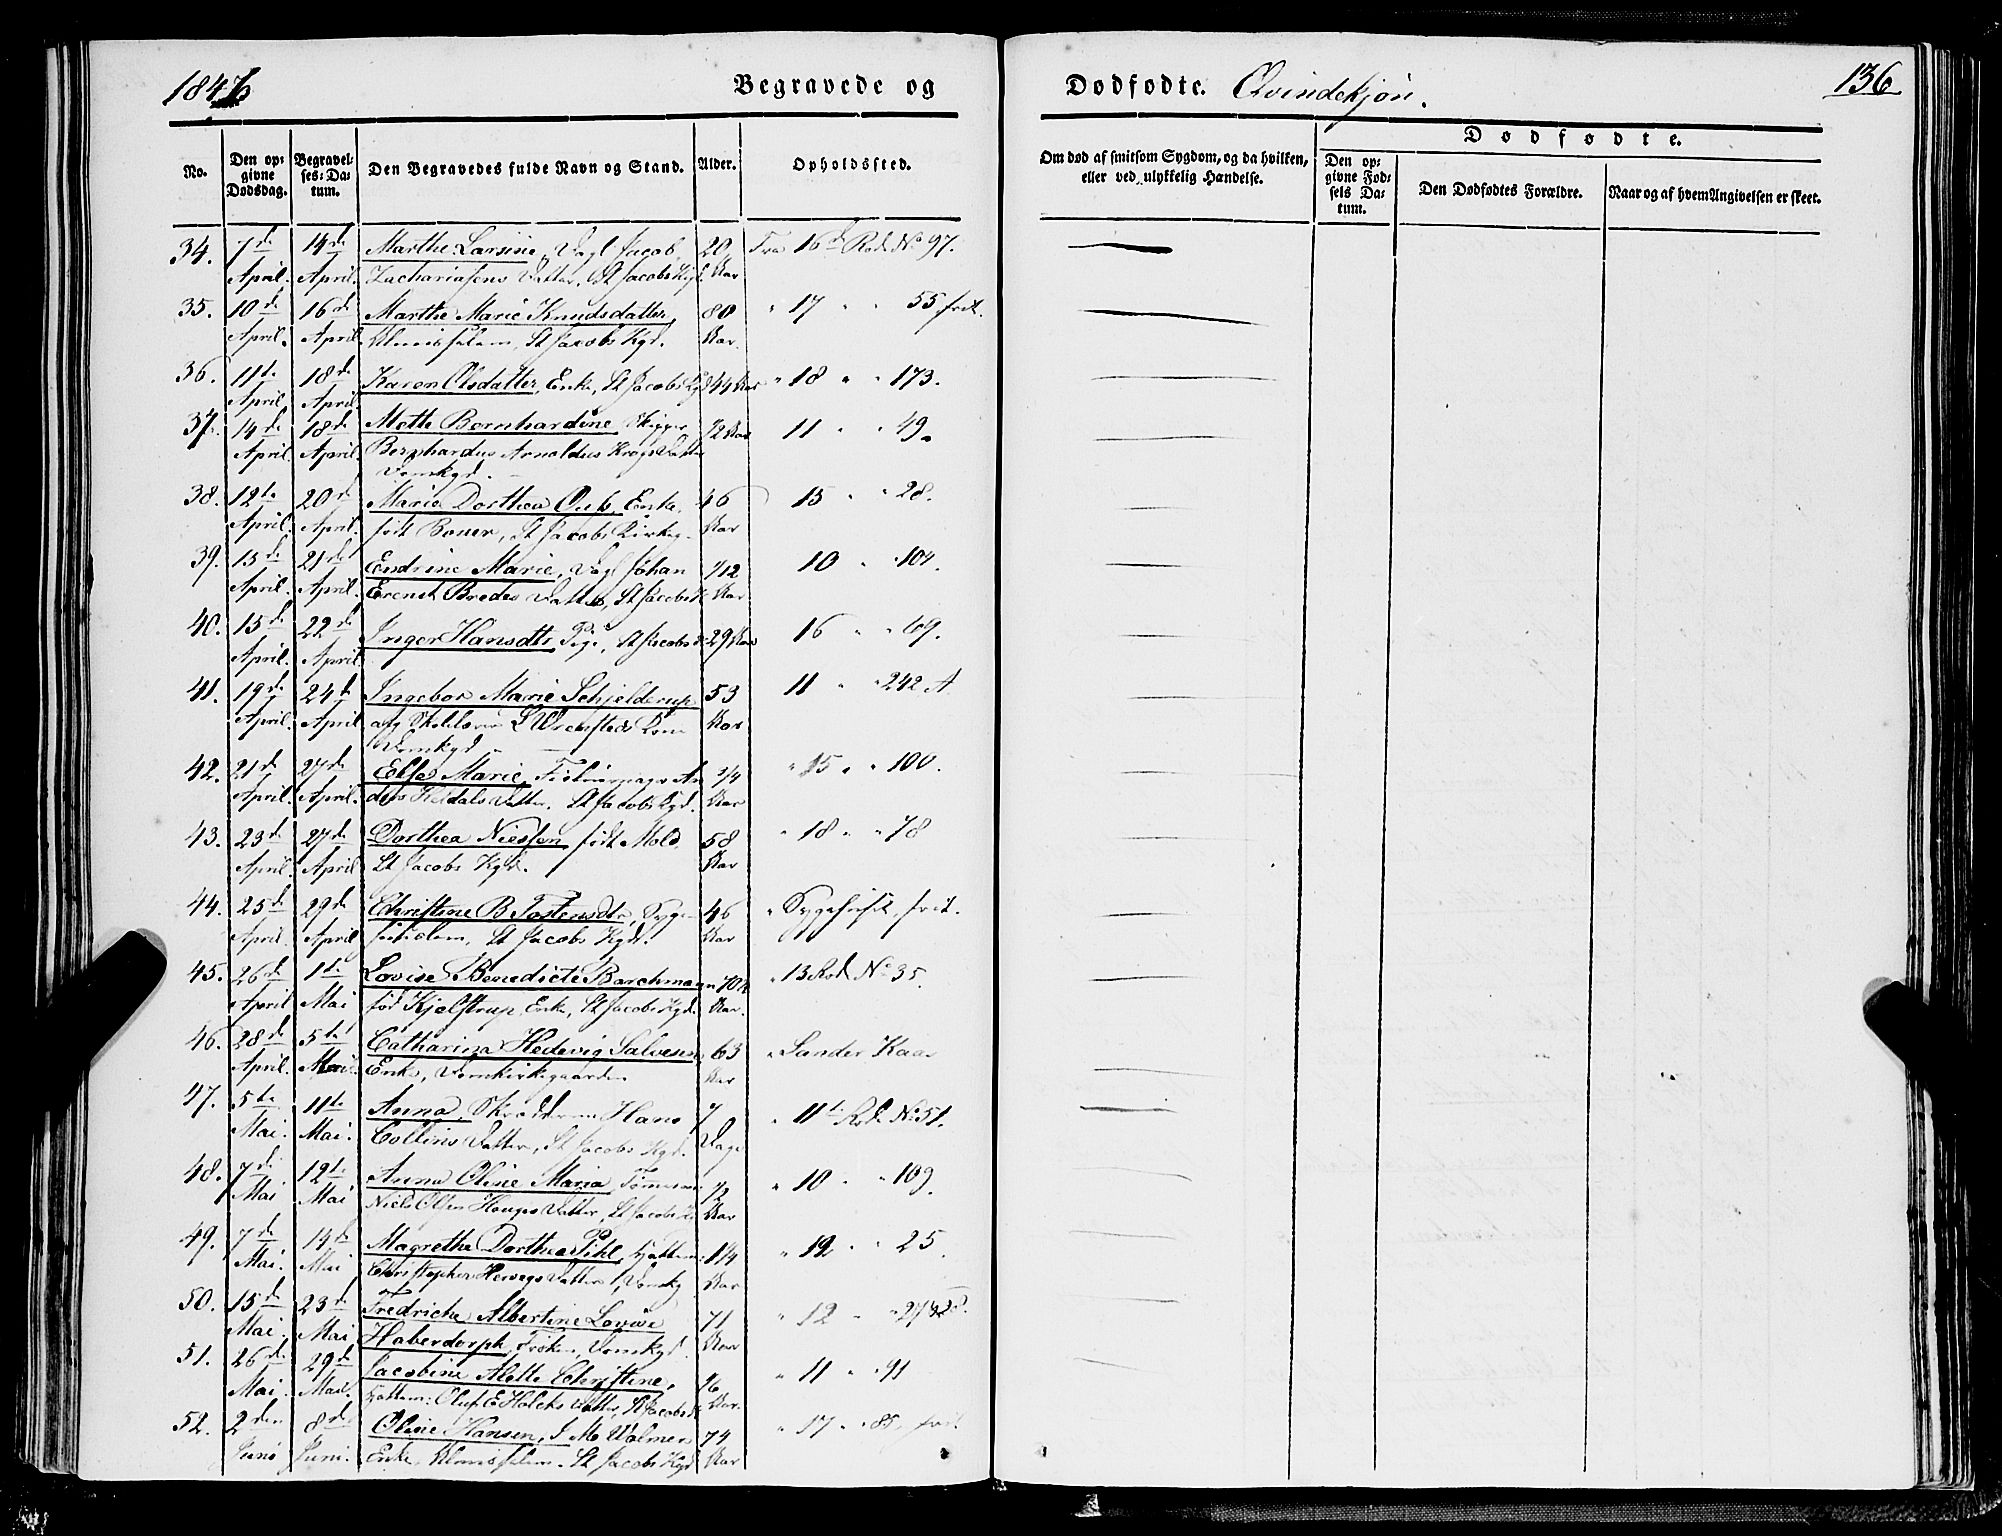 1846
Begravede og
Dødfødte. Qvindekjøn.
136
No.
Den op=
givne
Dødsdag.
Begravel=
ses=Da=
tum.
Den Begravedes fulde Navn og Stand.
Alder.
Opholdssted.
Om død af smitsom Sygdom, og da hvilken,
eller ved ulykkelig Hændelse.
Dødfødte.
Den op=
givne Fød=
sels Da=
tum.
Den Dødfødtes Forældre.
Naar og af hvem Angivelsen er skeet.
34. 7de 14de Marthe Larsine, Dagl Jacob 20 Fra 16de Rode No 97.
April. April. Zachariasens Datter, St Jacobs Kgd. Aar
35. 10de 16de Marthe Marie Knudsdatter, 80 " 17 " " 55 frit.
April. April. Almisselem, St Jacobs Kgd. Aar.
36. 11te 18de Karen Olsdatter, Enke, St Jacobs Kgd 44 Aar " 18 " " 173.
April. April.
37. 14de 18de Mette Bernhardine, Skipper 1/2 Aar 11 " " 49.
April. April. Bernhardus Arnoldus Krogs Datter
Domkgd.
38. 12te 20de Marie Dorthea Enke, 46 15 " " 28.
April. April. født Bauer, St Jacobs Kirkeg. Aar
39. 15de 21de Endrine Marie, Dagl Johan 1/12 10 " " 104.
April. April. Erenst Bredes Datter, St Jacobs K Aar
40. 15de 22de Inger Hansdtr, Pige, St Jacobs K 29 Aar 16 " " 69.
April. April.
41. 19de 24de Ingebor Marie Schjelderup 53 11 " " 242 A
April. April afg Skolelærer Kone Aar
Domkgd
42. 21de 27de Elsee Marie, An 3/4 " 15 " " 100.
April. April. ders Datter, St Jacobs Kgd. Aar
43. 23de 27de Dorthea Niessen født Mold, 58 " 18 " " 78
April April St Jacobs Kgd. Aar
44. 25de 29de Christine B Tostensdtr, Syge 46 " Sygehuset, frit.
April. April lem, St Jacobs Kgd. Aar
45. 26de 1te Lovise Benedicte Barchmann 70 1/2 " 13 Rode No 35.
April Mai fød Kjelstrup, Enke, St Jacobs Kgd. Aar.
46. 28de 5te Catharina Hedevig Salvesen 63 " Sander Kaas
April. Mai. Enke, Domkirkegaarden Aar
47. 5te 11te Anna, Skrædderm Hans 7 " 11te Rode No 51.
Mai. Mai. Collins Datter, St Jacobs Kgd. Dage
48. 7de 12te Anna Oline Maria, Tømmerm 1/2 " 10 " " 109.
Mai Mai Niels Olsen Hauges Datter, St Jacobs K Aar
49. 7de 14de Magrethe Dorthea Pihl, 1 1/4 " 12 " " 25.
Mai. Mai Christopher Hervegs Datter, Domkg Aar
50. 15de 23de Fredriche Albertine Lovise 71 " 12
Mai. Mai Haberdorph, Frøken, Domkgd. Aar
51. 26de 29de Jacobine Alette Christine, " 11 " " 91
Mai. Mai. Oluf E Holcks Datter, St Jacobs K Aar.
52. 2den 8de Oline Hansen, 74 " 17 " " 85, frit.
Juni Juni. Enke Almisselem. St Jacobs Kgd Aar